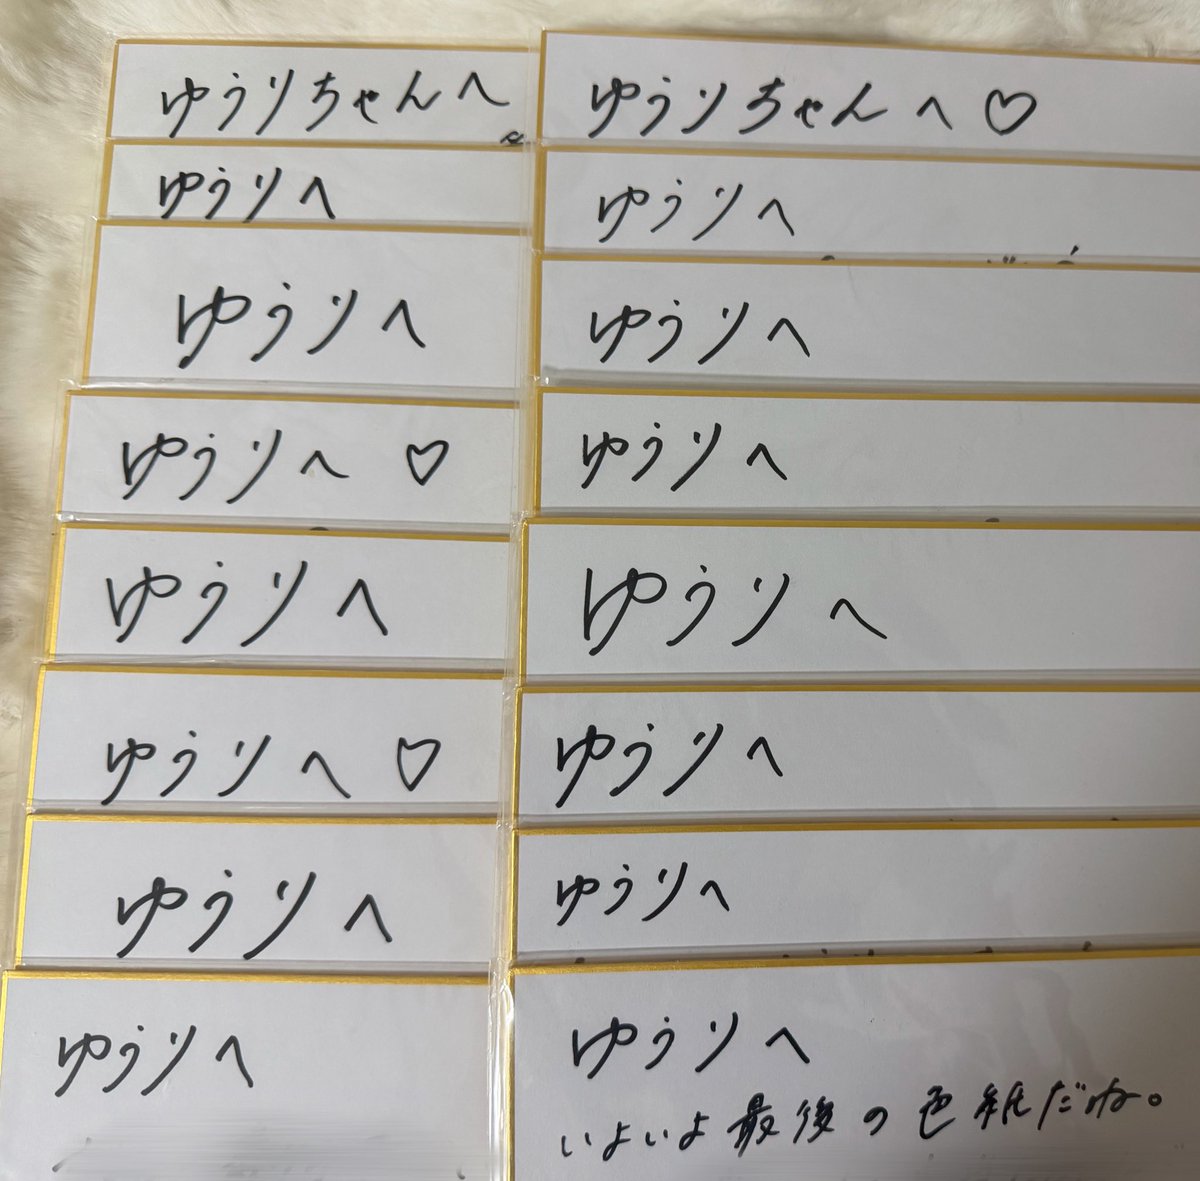 ゆうりちゃんへ
ゆうりへ
ゆうりへ
ゆうりへ♡
ゆうりへ
ゆうりへ♡
ゆうりへ
ゆうりへ
ゆうりちゃんへ♡
ゆうりへ
ゆうりへ
ゆうりへ
ゆうりへ
ゆうりへ
ゆうりへ
ゆうりへ
いよいよ最後の色紙だね。